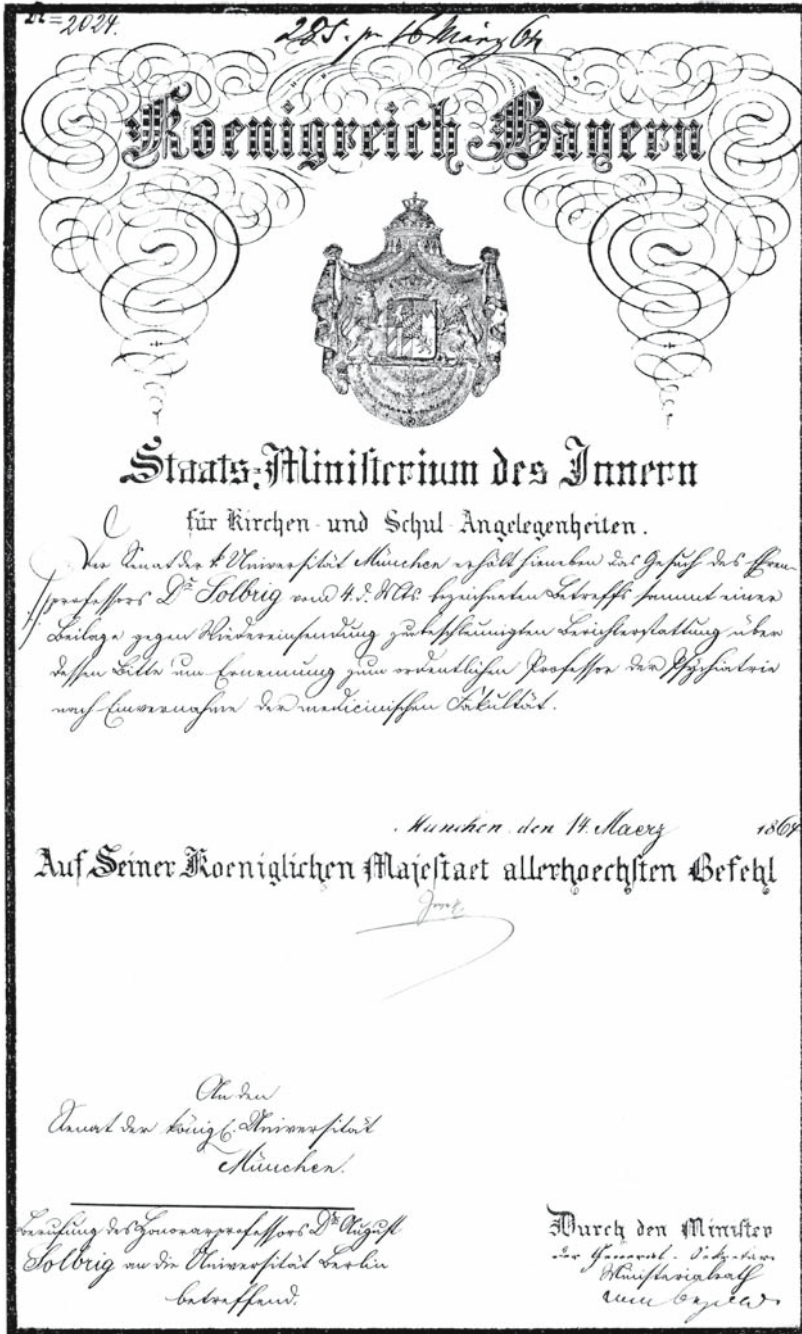 № 2024.
285. pr 16 März 64
Koenigreich Bayern
Staats-Ministerium des Innern
für Kirchen- und Schul-Angelegenheiten.
Der Senat der k. Universität München erhält hieneben das Gesuch des Ehren-
professors Dr. Solbrig vom 4. d. Mts. bezeichneten Betreffs sammt einer
Beilage gegen Wiedereinsendung zu beschleunigten Berichterstattung über
dessen Bitte um Ernennung zum ordentlichen Professor der Psychiatrie
nach Einvernahme der medicinischen Fakultät.
München, den 14. Maerz 1864
Auf Seiner Koeniglichen Majestaet allerhoechsten Befehl
An den
Senat der königl. Universität
München.
Berufung des Honorarprofessors Dr. August
Solbrig an die Universität Berlin
betreffend.
Durch den Minister
der General-Sekretär
Ministerialrath